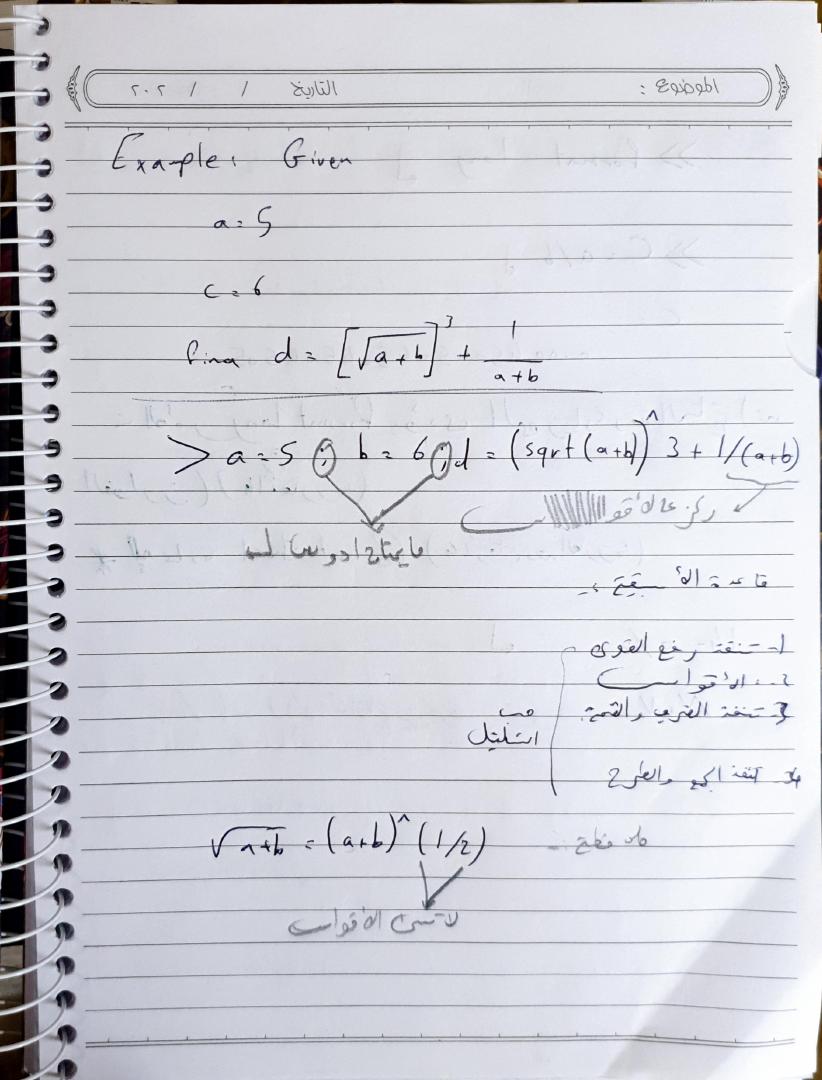 الموضوع : التاريخ / / ٢٠٢
Example: Given
a = 5
c = 6
Find d = [√(a+b)]^3 + 1/(a+b)
> a = 5 ; b = 6 ; d = (sqrt(a+b))^3 + 1/(a+b)
ركز عالأقواس
ما يحتاج ادوس
قاعدة الأسبقية :-
1- تنفذ رفع القوى
2- الأقواس
3- تنفذ الضرب والقسمة
حسب
التسلسل
4- تنفذ الجمع والطرح
ملاحظة :-
√(a+b) = (a+b)^(1/2)
لا تنسى الأقواس